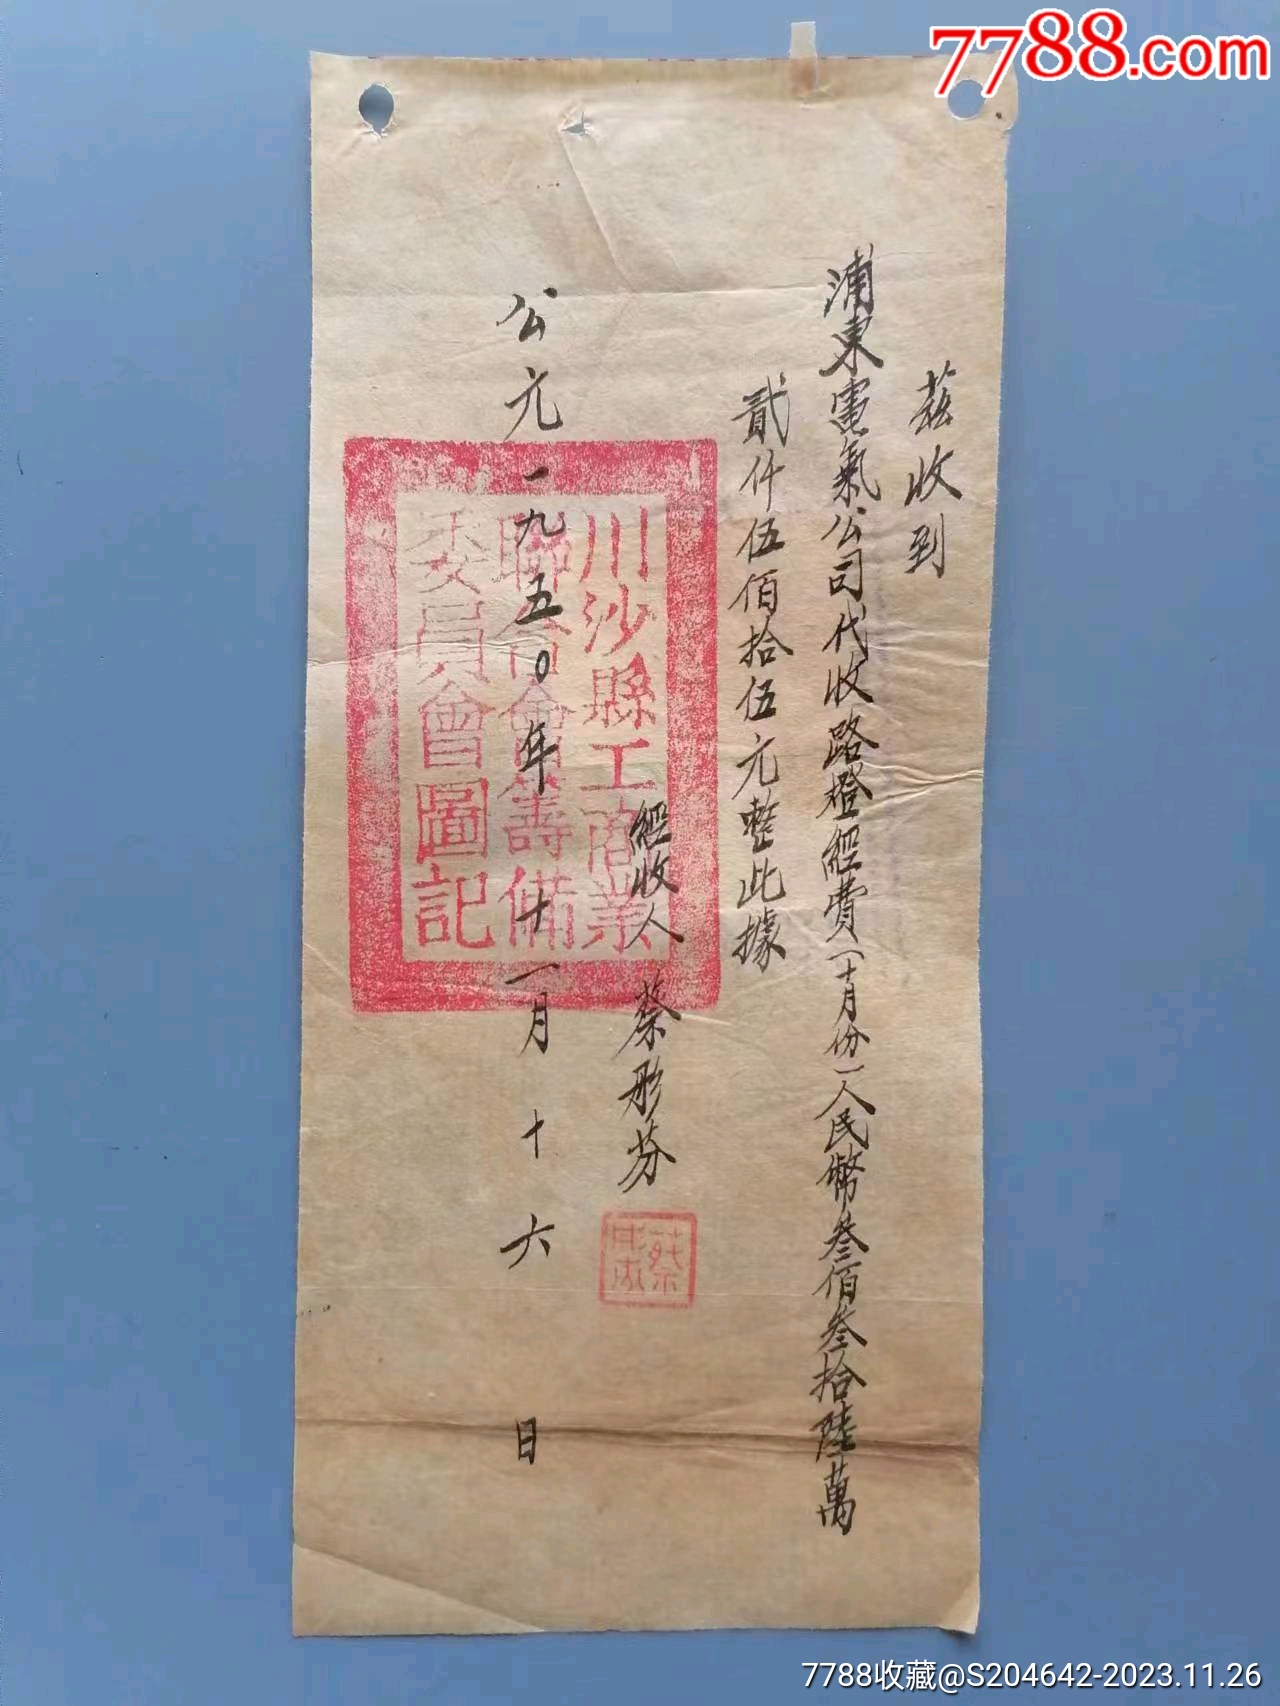 7788.com
茲收到
浦東電氣公司代收路燈經費(十月份)人民幣叁佰叁拾陸萬
貳仟伍佰拾伍元整此據
經收人 蔡彤芬
公元一九五〇年十一月十六日
川沙縣工商業
聯合會籌備
委員會圖記
7788收藏@S204642-2023.11.26